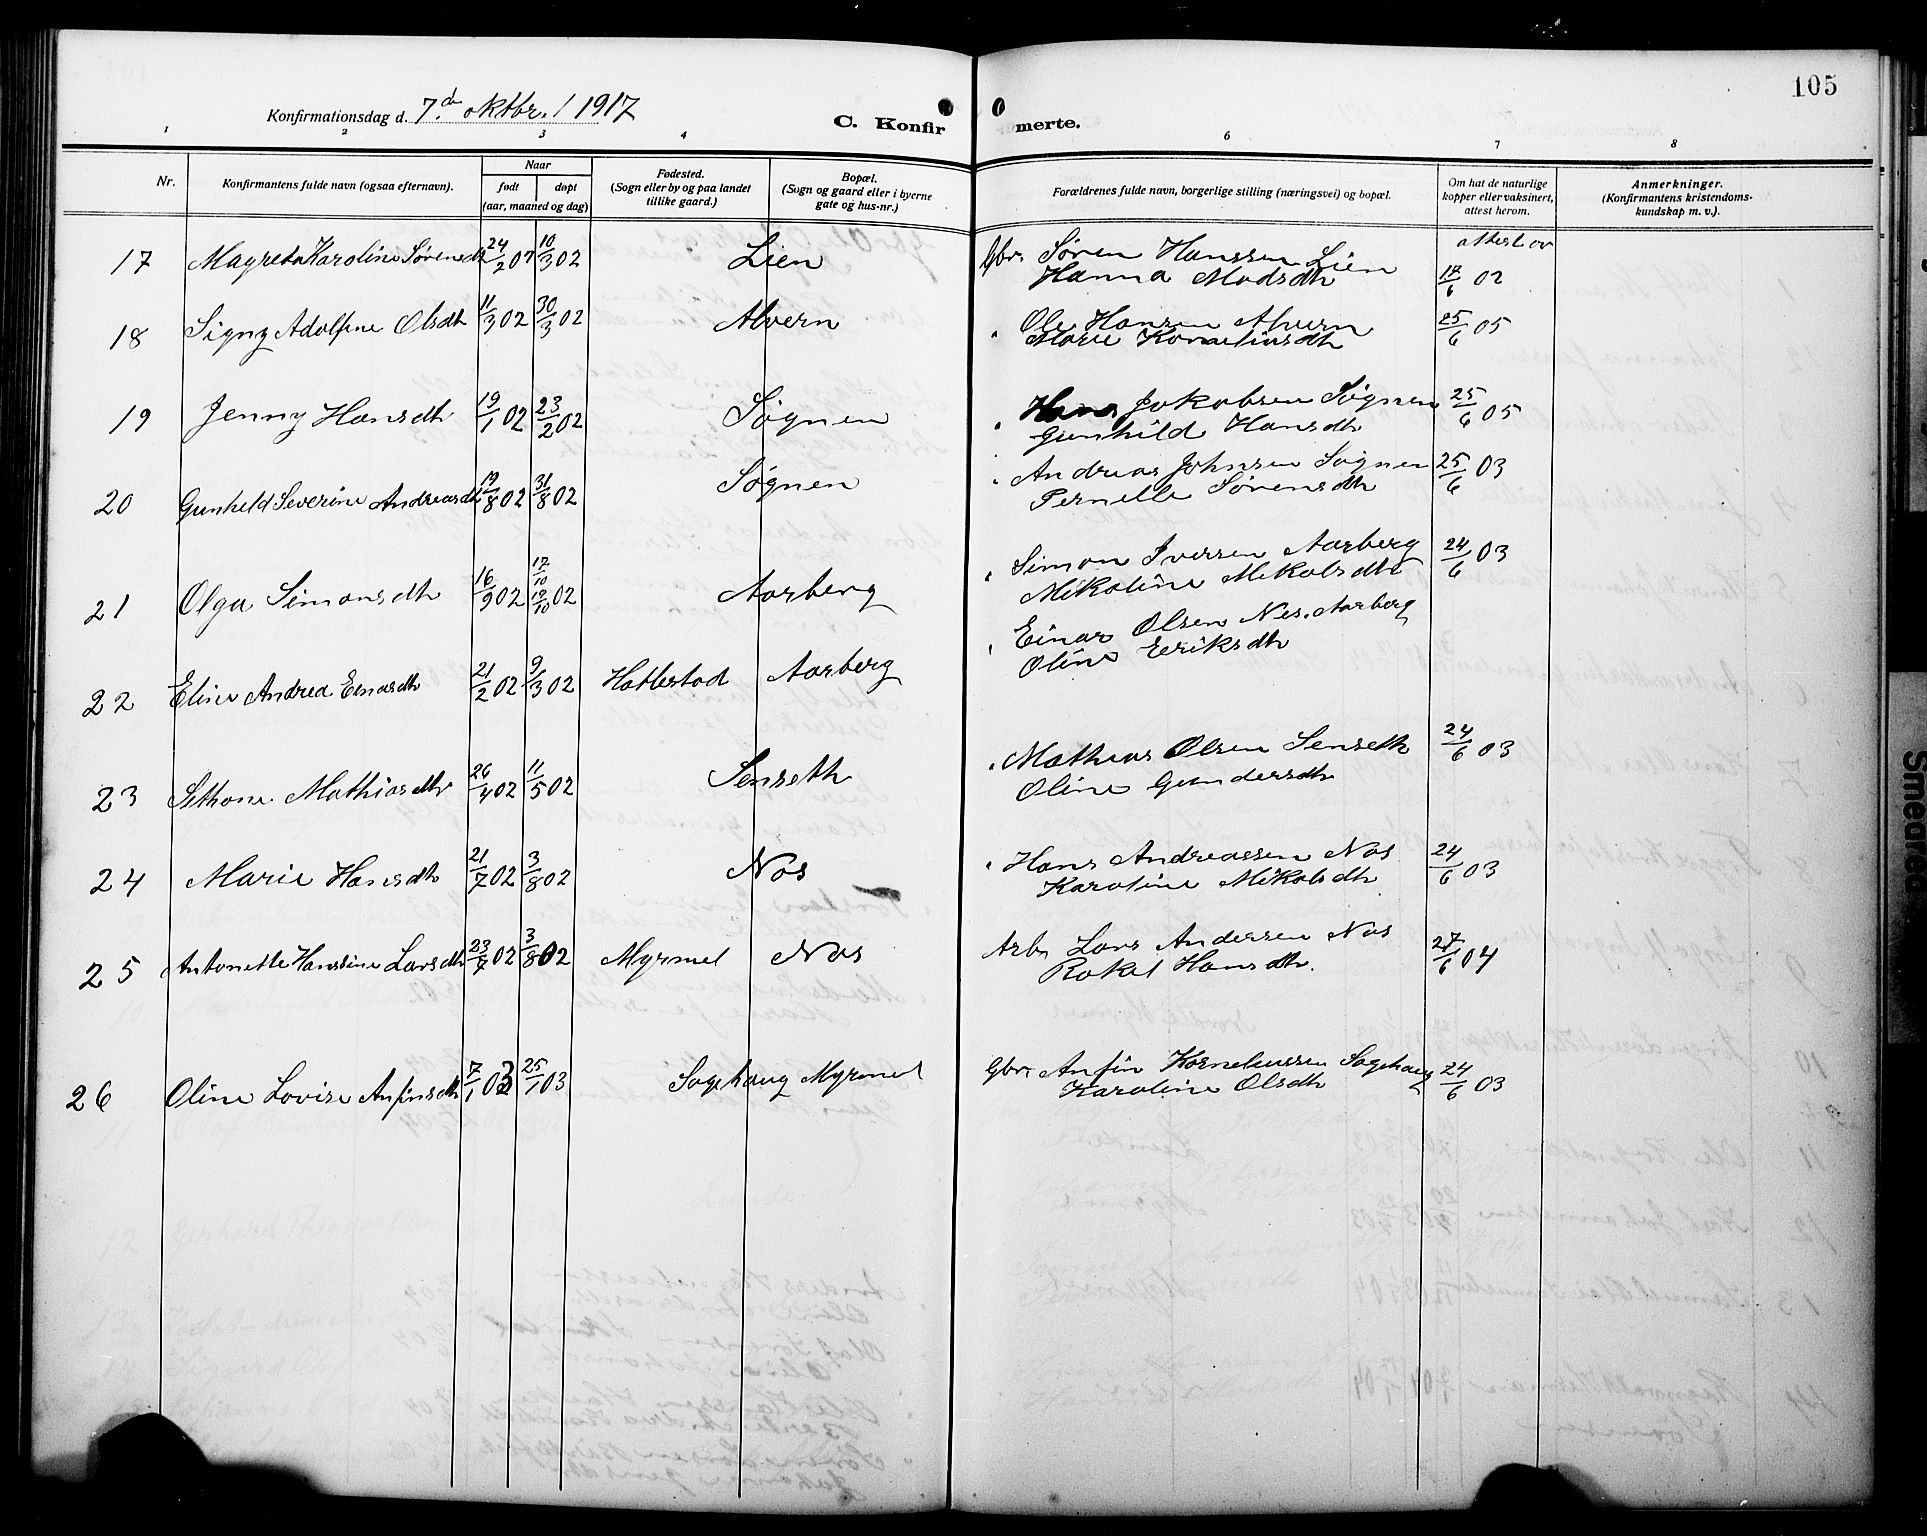 105
Konfirmationsdag d. 7.de oktbr. 1917
C. Konfirmerte.
1 2 3 4 6 7 8
Nr.
Konfirmantens fulde navn (ogsaa efternavn).
Naar
født døpt
(aar, maaned og dag)
Fødested.
(Sogn eller by og paa landet
tillike gaard.)
Bopæl.
(Sogn og gaard eller i byerne
gate og hus-nr.)
Forældrenes fulde navn, borgerlige stilling (næringsvei) og bopæl.
Om hat de naturlige
kopper eller vaksinert,
attest herom.
Anmerkninger.
(Konfirmantens kristendoms-
kundskap m. v.).
17 Magreta Karoline Sørensdtr 24/2 02 10/3 02 Lien Gbr. Søren Hanssen Lien attest av
Hanna Madsdtr 17/6 02
18 Signy Adolfine Olsdtr 11/3 02 30/3 02 Alvern " Ole Hansen Alvern 25/6 05
Marie Korneliusdtr
19 Jenny Hansdtr 19/1 02 23/2 02 Søgnen " Hans Jakobsen Søgnen 25/6 05
Gunhild Hansdtr
20 Gunhild Severine Andreasdtr 19/8 02 31/8 02 Søgnen " Andreas Johnsen Søgnen 25/6 03
Pernelle Sørensdtr
21 Olga Simonsdtr 16/9 02 17/10 19/10 02 Aarberg " Simon Iversen Aarberg 24/6 03
Mikoline Mikalsdtr
22 Eline Andrea Einarsdtr 21/2 02 9/3 02 Hatlestad Aarberg " Einar Olsen Nes. Aarberg
Oline Eeriksdtr
23 Sethone Mathiasdtr 26/4 02 11/5 02 Senseth " Mathias Olsen Senseth 24/6 03
Oline Gundersdtr
24 Marie Hansdtr 21/7 02 3/8 02 Nos " Hans Andreassen Nos 24/6 03
Karoline Mikalsdtr
25 Antonette Hansine Larsdtr 23/7 02 3/8 02 Myrmel Nos Arb. Lars Andersen Nos 27/6 04
Rakel Hansdtr.
26 Oline Lovise Anfinsdtr 7/1 03 25/1 03 Sagehaug Myrmel Gbr. Anfin Korneliussen Sagehaug 24/6 03
Karoline Olsdtr
Smeared